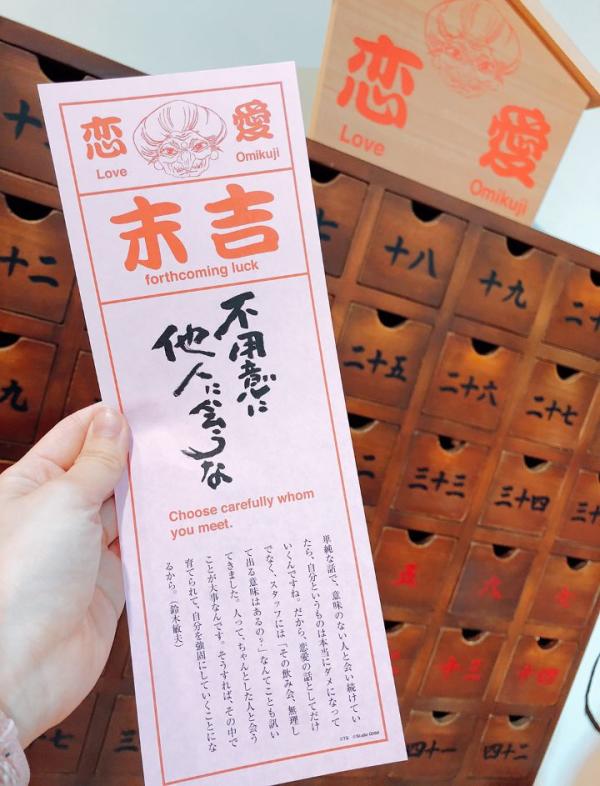 恋愛
Love
Omikuji
末吉
forthcoming luck
不用意に
他人に会うな
Choose carefully whom
you meet.
単純な話で、意味のない人と会い続けてい
たら、自分というものは本当にダメになって
いくんですね。だから、恋愛の話としてだけ
でなく、スタッフには「その飲み会、無理し
て出る意味はあるの?」なんてことも訊い
てきました。人って、ちゃんとした人と会う
ことが大事なんです。そうすれば、その中で
育てられて、自分を強固にしていくことにな
るから。(鈴木敏夫)
©TS ©Studio Ghibli
恋愛
Love
Omikuji
十八
十九
十二
二十五
二十六
二十七
九
三十三
三十四
五
六
七
十三
十四
四十一
四十二